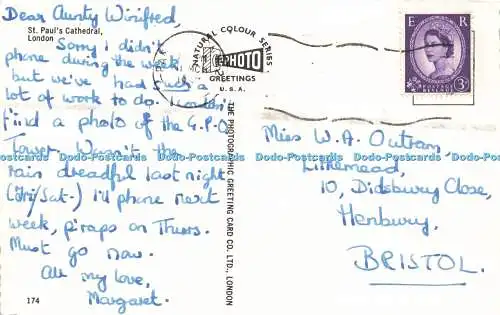 Dear Aunty Winifred,
St. Paul's Cathedral,
London
Sorry I didn't
phone during the week
but we've had such a
lot of work to do. I couldn't
find a photo of the G.P.O
Tower. Wasn't the
rain dreadful last night
(Fri/Sat.) I'll phone next
week, p'raps on Thurs.
Must go now.
All my love,
Margaret.
174
NATURAL COLOUR SERIES
PHOTO
GREETINGS
U.S.A.
THE PHOTOGRAPHIC GREETING CARD CO. LTD., LONDON
E R
POSTAGE REVENUE
3D
Miss W. A. Outram,
Lithemead,
10, Didsbury Close,
Henbury,
BRISTOL.
Dodo-Postcards Dodo-Postcards Dodo-Postcards Dodo-Postcards Dodo-Postcards